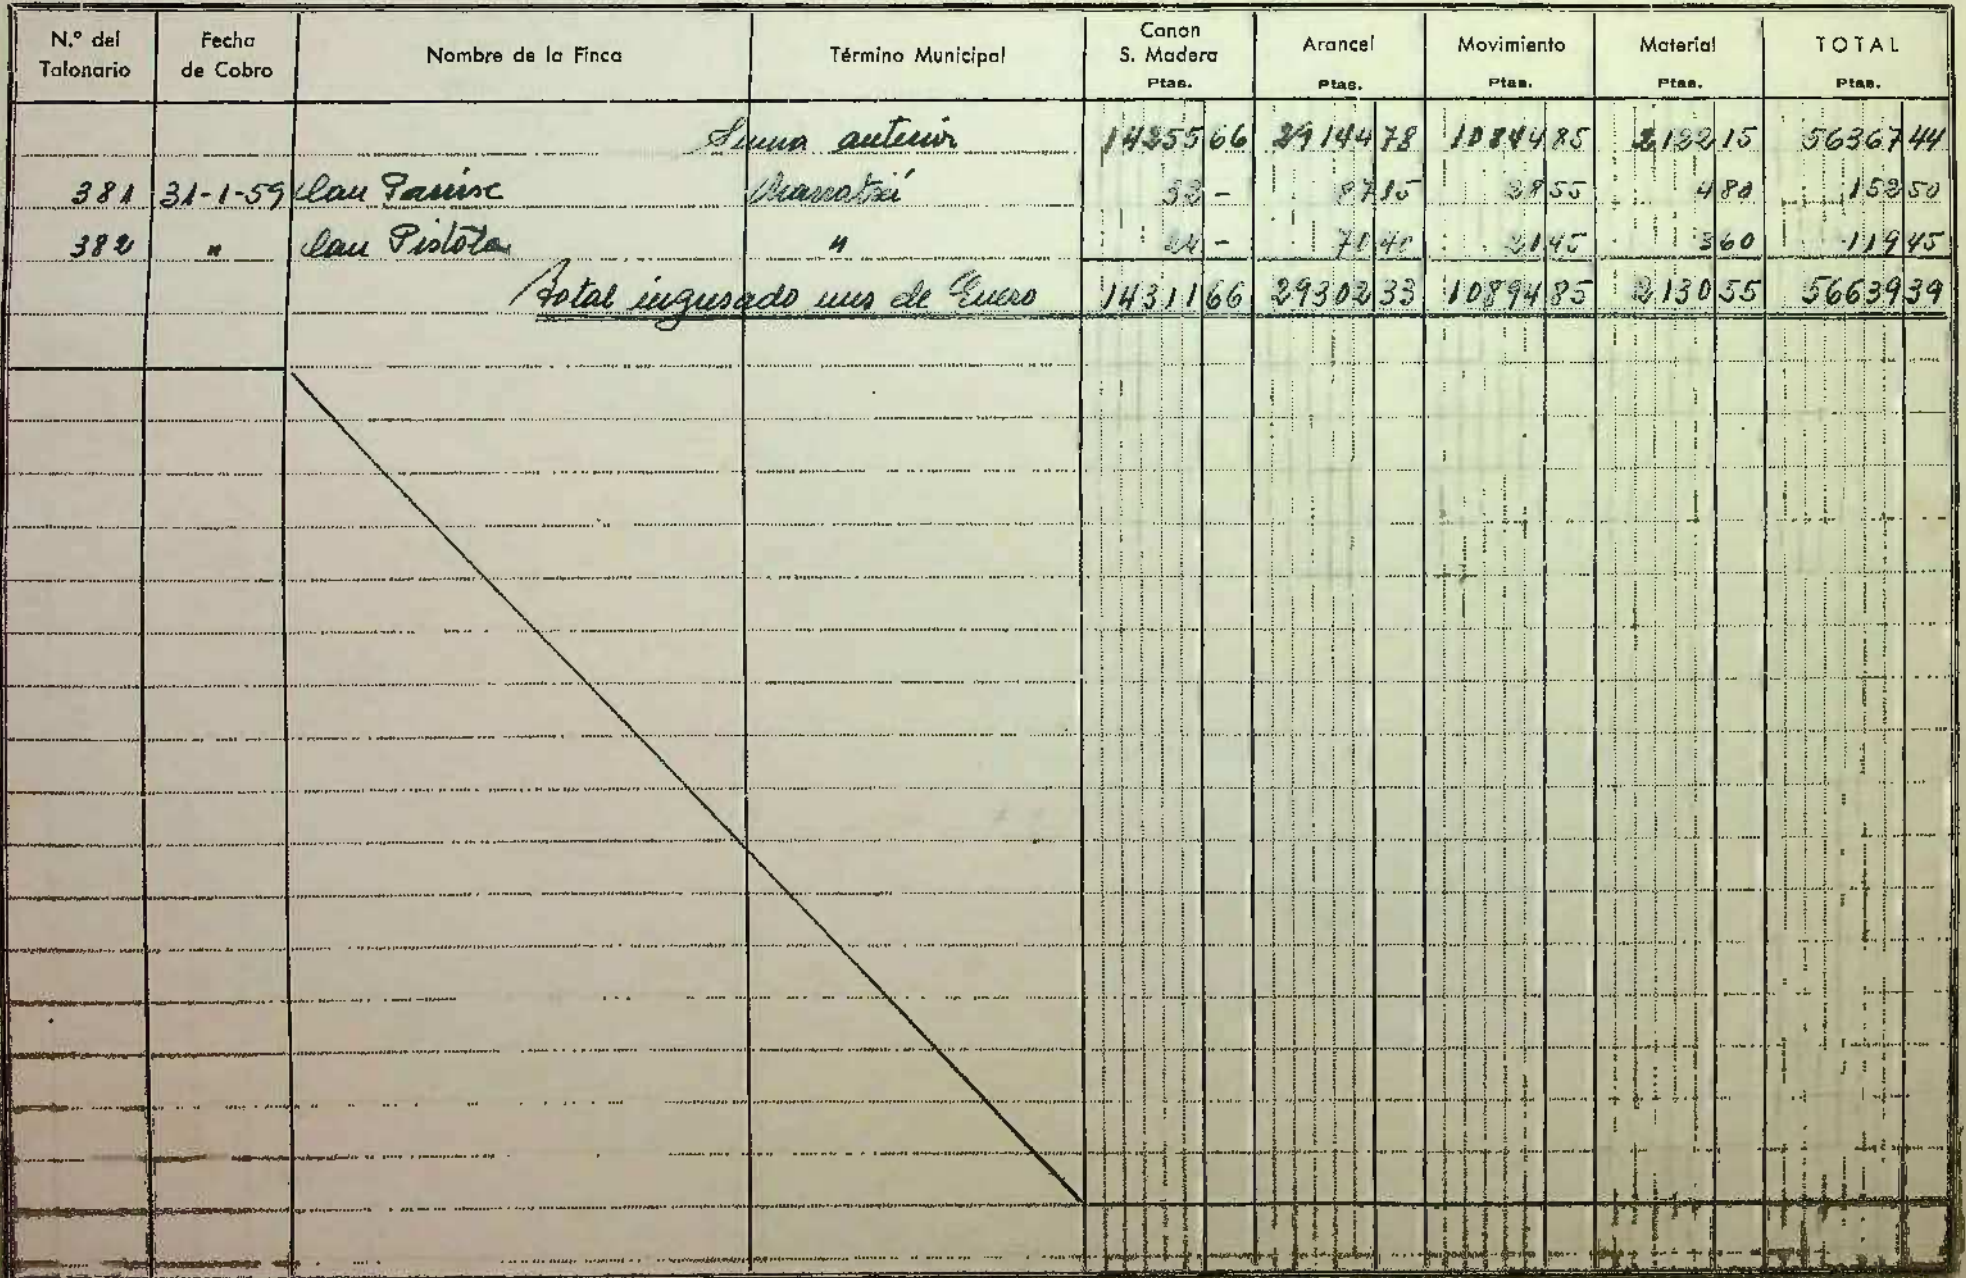 N.º del Talonario Fecha de Cobro Nombre de la Finca Término Municipal Canon S. Madera Ptas. Arancel Ptas. Movimiento Ptas. Material Ptas. TOTAL Ptas.
Suma anterior 14255 66 29144 78 10844 85 2122 15 56367 44
381 31-1-59 Can Marratxí 32 - 87 15 28 55 4 80 152 50
382 " Can Pistola " 24 - 70 40 21 45 3 60 119 45
Total ingresado mes de Enero 14311 66 29302 33 10894 85 2130 55 56639 39